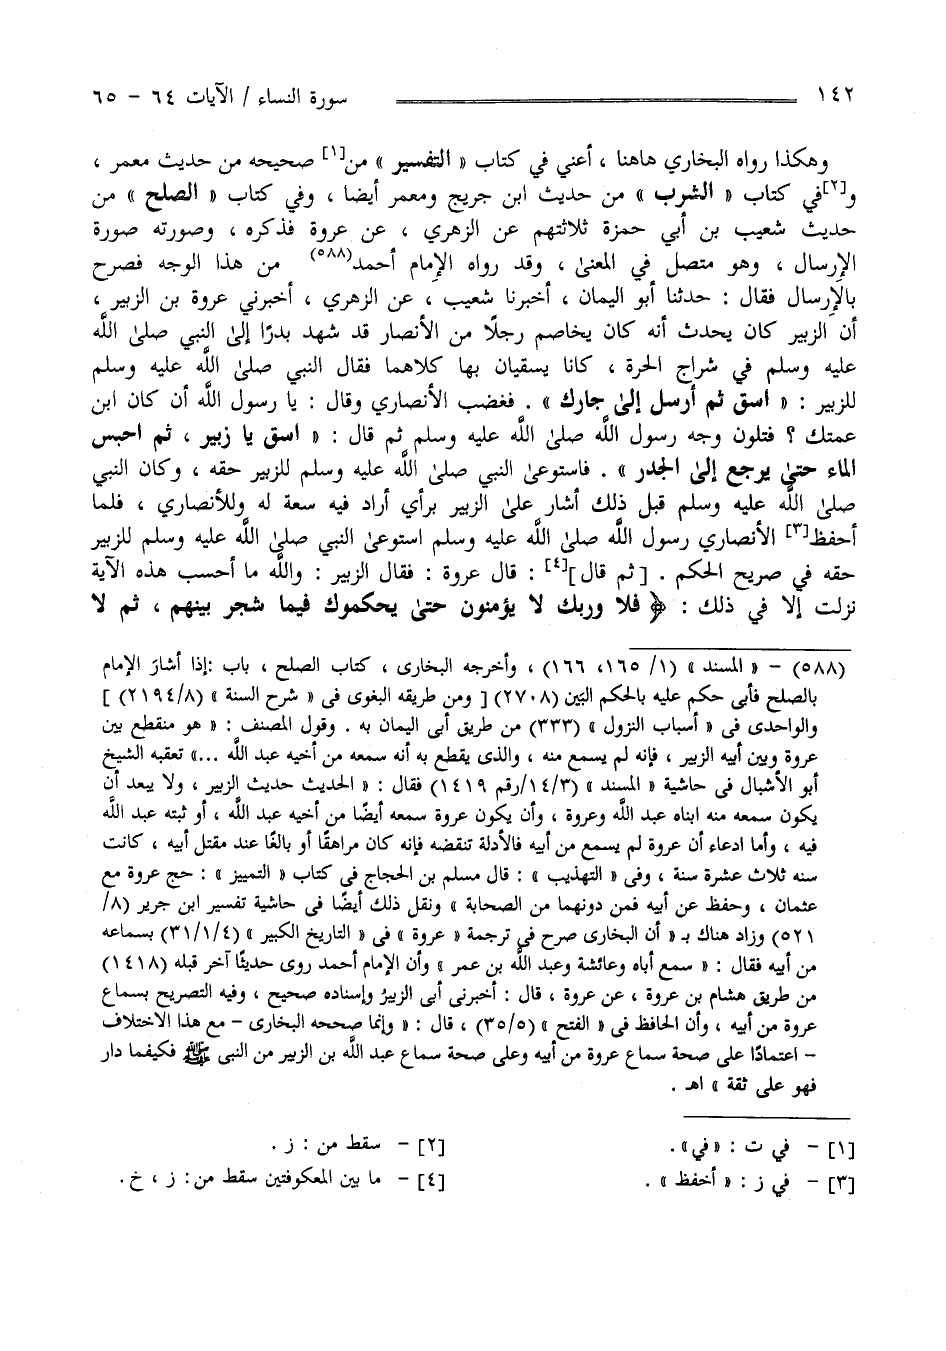 ١٤٢ سورة النساء / الآيات ٦٤ - ٦٥
وهكذا رواه البخاري هاهنا ، أعني في كتاب « التفسير » من[١] صحيحه من حديث معمر ،
و[٢]في كتاب « الشرب » من حديث ابن جريج ومعمر أيضا ، وفي كتاب « الصلح » من
حديث شعيب بن أبي حمزة ثلاثتهم عن الزهري ، عن عروة فذكره ، وصورته صورة
الإرسال ، وهو متصل في المعنىٰ ، وقد رواه الإمام أحمد(٥٨٨) من هذا الوجه فصرح
بالإرسال فقال : حدثنا أبو اليمان ، أخبرنا شعيب ، عن الزهري ، أخبرني عروة بن الزبير ،
أن الزبير كان يحدث أنه كان يخاصم رجلًا من الأنصار قد شهد بدرًا إلىٰ النبي صلىٰ اللَّه
عليه وسلم في شراج الحرة ، كانا يسقيان بها كلاهما فقال النبي صلىٰ اللَّه عليه وسلم
للزبير : « اسق ثم أرسل إلىٰ جارك » . فغضب الأنصاري وقال : يا رسول اللَّه أن كان ابن
عمتك ؟ فتلون وجه رسول اللَّه صلىٰ اللَّه عليه وسلم ثم قال : « اسق يا زبير ، ثم احبس
الماء حتىٰ يرجع إلىٰ الجدر » . فاستوعىٰ النبي صلىٰ اللَّه عليه وسلم للزبير حقه ، وكان النبي
صلىٰ اللَّه عليه وسلم قبل ذلك أشار علىٰ الزبير برأي أراد فيه سعة له وللأنصاري ، فلما
أحفظ[٣] الأنصاري رسول اللَّه صلىٰ اللَّه عليه وسلم استوعىٰ النبي صلىٰ اللَّه عليه وسلم للزبير
حقه في صريح الحكم . [ ثم قال ][٤] : قال عروة : فقال الزبير : واللَّه ما أحسب هذه الآية
نزلت إلا في ذلك : ﴿ فلا وربك لا يؤمنون حتىٰ يحكموك فيما شجر بينهم ، ثم لا
(٥٨٨) - « المسند » (١/ ١٦٥، ١٦٦) ، وأخرجه البخارى ، كتاب الصلح ، باب :إذا أشارَ الإمام
بالصلح فأبى حكم عليه بالحكم البَيّن (٢٧٠٨) [ ومن طريقه البغوى فى « شرح السنة » (٢١٩٤/٨) ]
والواحدى فى « أسباب النزول » (٣٣٣) من طريق أبى اليمان به . وقول المصنف : « هو منقطع بين
عروة وبين أبيه الزبير ، فإنه لم يسمع منه ، والذى يقطع به أنه سمعه من أخيه عبد اللَّه ...» تعقبه الشيخ
أبو الأشبال فى حاشية « المسند » (١٤/٣/رقم ١٤١٩) فقال : « الحديث حديث الزبير ، ولا يبعد أن
يكون سمعه منه ابناه عبد اللَّه وعروة ، وأن يكون عروة سمعه أيضًا من أخيه عبد اللَّه ، أو ثبته عبد اللَّه
فيه ، وأما ادعاء أن عروة لم يسمع من أبيه فالأدلة تنقضه فإنه كان مراهقًا أو بالغًا عند مقتل أبيه ، كانت
سنه ثلاث عشرة سنة ، وفى « التهذيب » : قال مسلم بن الحجاج فى كتاب « التمييز » : حج عروة مع
عثمان ، وحفظ عن أبيه فمن دونهما من الصحابة » ونقل ذلك أيضًا فى حاشية تفسير ابن جرير (٨/
٥٢١) وزاد هناك بـ « أن البخارى صرح فى ترجمة « عروة » فى « التاريخ الكبير » (٣١/١/٤) بسماعه
من أبيه فقال : « سمع أباه وعائشة وعبد اللَّه بن عمر » وأن الإمام أحمد روى حديثًا آخر قبله (١٤١٨)
من طريق هشام بن عروة ، عن عروة ، قال : أخبرنى أبى الزبيرُ وإسناده صحيح ، وفيه التصريح بسماع
عروة من أبيه ، وأن الحافظ فى « الفتح » (٣٥/٥) ، قال : « وإنما صححه البخارى - مع هذا الاختلاف
- اعتمادًا على صحة سماع عروة من أبيه وعلى صحة سماع عبد اللَّه بن الزبير من النبى ﷺ فكيفما دار
فهو على ثقة » اهـ .
[١] - في ت : «في». [٢] - سقط من : ز .
[٣] - في ز : « أخفظ » . [٤] - ما بين المعكوفتين سقط من: ز ، خ.